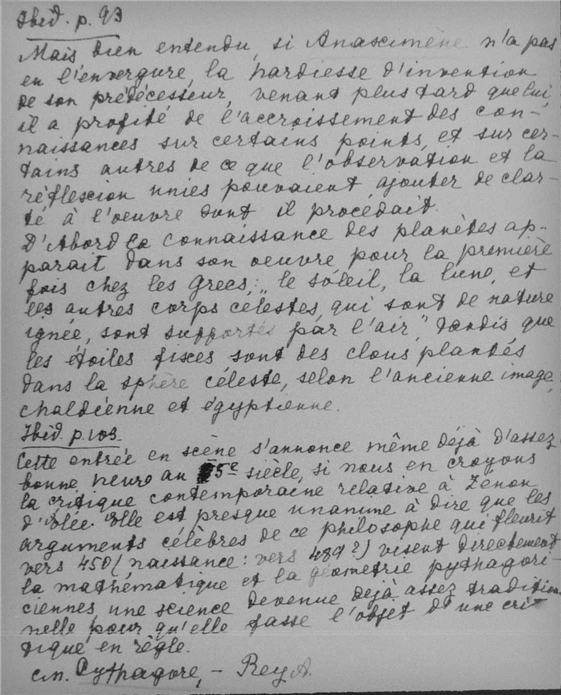 Ibid. p. 93
Mais, bien entendu, si Anaximène n'a pas
eu l'envergure, la hardiesse d'invention
de son prédécesseur, venant plus tard que lui,
il a profité de l'accroissement des con-
naissances sur certains points, et sur cer-
tains autres de ce que l'observation et la
réflexion unies pouvaient ajouter de clar-
té à l'oeuvre dont il procédait.
D'Abord la connaissance des planètes ap-
parait dans son oeuvre pour la première
fois chez les Grecs: "le soleil, la lune, et
les autres corps célestes, qui sont de nature
ignée, sont supportés par l'air", tandis que
les étoiles fixes sont des clous plantés
dans la sphère céleste, selon l'ancienne image
chaldéenne et égyptienne.
Ibid. p. 103
Cette entrée en scène s'annonce même déjà d'assez
bonne heure au 5e siècle, si nous en croyons
la critique contemporaine relative à Zénon
d'Elée. Elle est presque unanime à dire que les
arguments célèbres de ce philosophe qui fleurit
vers 450 (naissance: vers 489?) visent directement
la mathématique et la géometrie pythagori-
ciennes une science devenue déjà assez tradition-
nelle pour qu'elle fasse l'objet d'une cri-
tique en règle.
см. Pythagore, - Rey A.